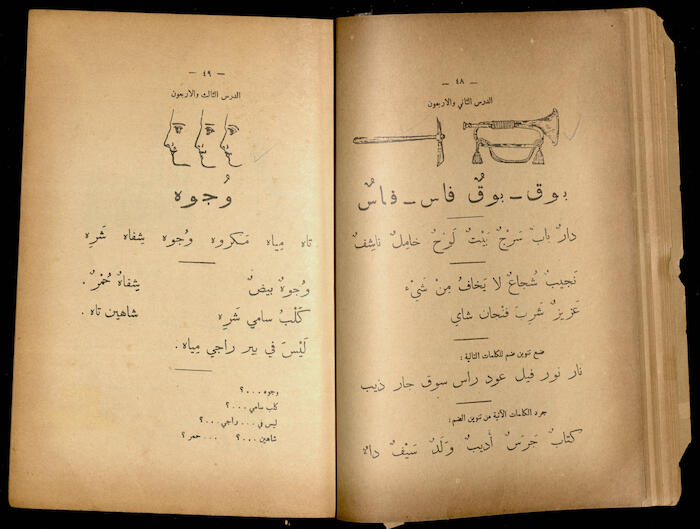 — ٤٨ —
الدرس الثاني والاربعون
بوق - بوقٌ فاس - فاسٌ
دارٌ بابٌ سَرْجٌ بَيْتٌ لَوْحٌ خامِلٌ ناشِفٌ
نَجيبٌ شُجاعٌ لا يَخافُ مِنْ شَيْء
عَزيزٌ شَرِبَ فنْجان شاي
ضع تنوين ضم للكلمات التالية :
نار نور فيل عود راس سوق جار ذيب
جرد الكلمات الآتية من تنوين الضم :
كتابٌ جَرَسٌ أديبٌ وَلَدٌ سَيْفٌ
— ٤٩ —
الدرس الثالث والاربعون
وُجوه
تاه مِياه مَكروه وُجوه شِفاه شَرِه
وُجوهٌ بيضٌ شِفاهٌ حُمْرٌ .
كَلْبُ سامي شَرِه شاهين تاه .
لَيْسَ في بير راجي مِياه .
وجوه . . . ؟
كلب سامي . . . ؟
ليس في . . . راجي ؟
شاهين . . . ؟ . . . حمر ؟